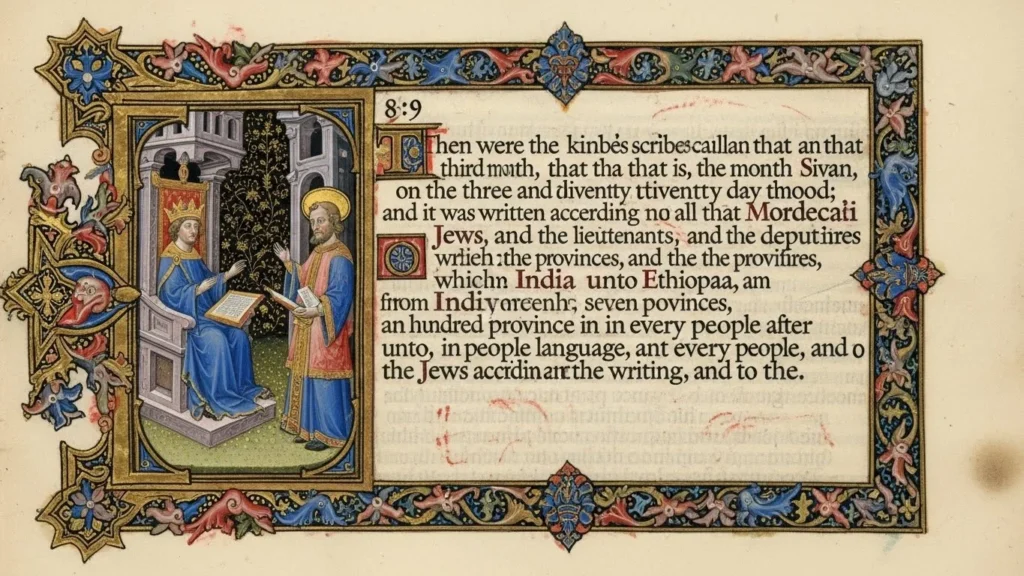 8:9
Then were the kinbés scribescaillan that an that
third month, that tha that is, the month Sivan,
on the three and diventty ttiventty day thood;
and it was written accerdiñg no all that Mordecati
Jews, and the lieutenants, and the deputires
wrlieh :the provinces, and the the provifires,
whichn India unto Ethiopaa, am
from Indiyorcenhr, seven povinces,
an hundred province in in every people after
unto, in people language, ant every people, and o
the Jews accidinant the writing, and to the.